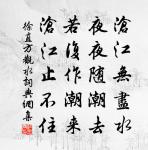 滄江無盡水
夜夜隨潮去
若復作潮來
滄江止不住
徐直方觀水詞典網集